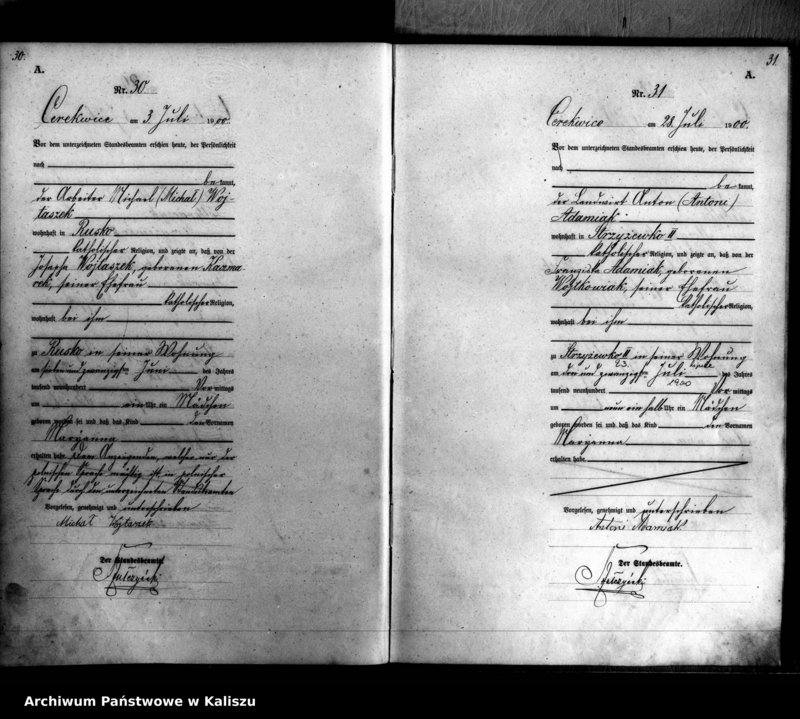 30.
A.
Nr. 30
Cerekwice am 3 Juli 1900.
Vor dem unterzeichneten Standesbeamten erschien heute, der Persönlichkeit
nach
be kannt,
der Arbeiter Michael (Michał) Woj-
taszek
wohnhaft in Rusko
katholischer Religion, und zeigte an, daß von der
Josepha Wojtaszek, geborenen Kazma
rek, seiner Ehefrau
katholischer Religion,
wohnhaft bei ihm
zu Rusko in seiner Wohnung
am sieben und zwanzigsten Juni des Jahres
tausend neunhundert Vor mittags
um ein Uhr ein Mädchen
geboren worden sei und daß das Kind den Vornamen
Maryanna
erhalten habe. Dem Anzeigenden, welcher nur der
polnischen Sprache mächtig ist in polnischer
Sprache durch den unterzeichneten Standesbeamten
Vorgelesen, genehmigt und unterschrieben
Michał Wojtaszek
Der Standesbeamte.
31.
A.
Nr. 31
Cerekwice am 28 Juli 1900.
Vor dem unterzeichneten Standesbeamten erschien heute, der Persönlichkeit
nach
be kannt,
der Landwirt Anton (Antoni)
Adamiak
wohnhaft in Strzyżewko II
katholischer Religion, und zeigte an, daß von der
Franziska Adamiak, geborenen
Wojtkowiak, seiner Ehefrau
katholischer Religion,
wohnhaft bei ihm
zu Strzyżewko II in seiner Wohnung
am drei und zwanzigsten 23. Juli des Jahres
tausend neunhundert 1900 Vor mittags
um neun ein halb Uhr ein Mädchen
geboren worden sei und daß das Kind den Vornamen
Maryanna
erhalten habe
Vorgelesen, genehmigt und unterschrieben
Antoni Adamiak
Der Standesbeamte.
Archiwum Państwowe w Kaliszu